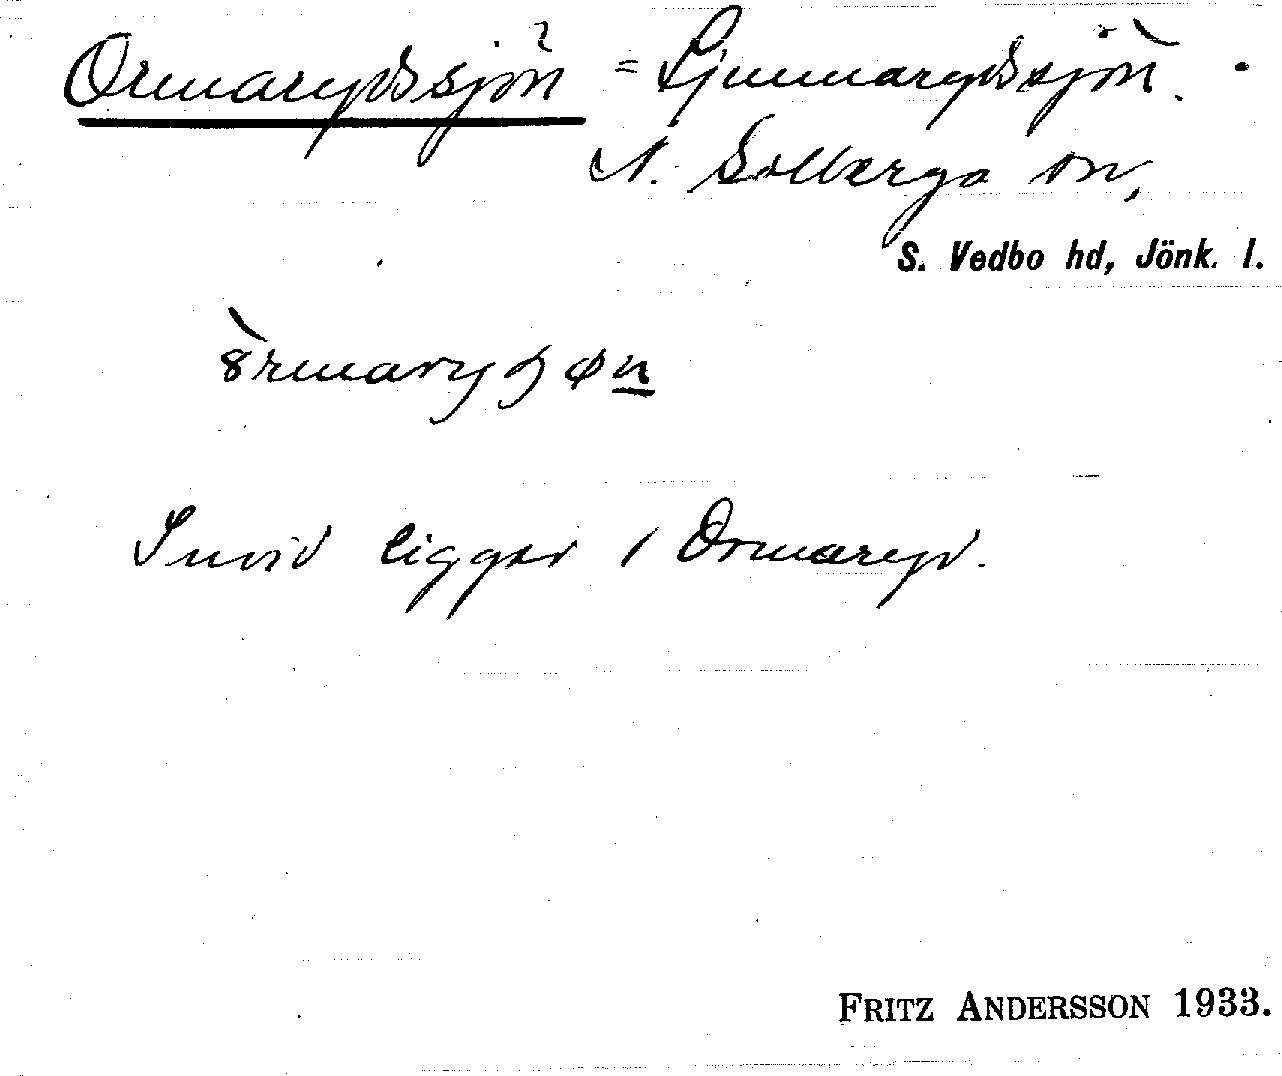 Ormarydssjön = Ljunnarydssjön.
N. Solberga sn,
S. Vedbo hd, Jönk. l.
Invid ligger / Ormaryd.
FRITZ ANDERSSON 1933.